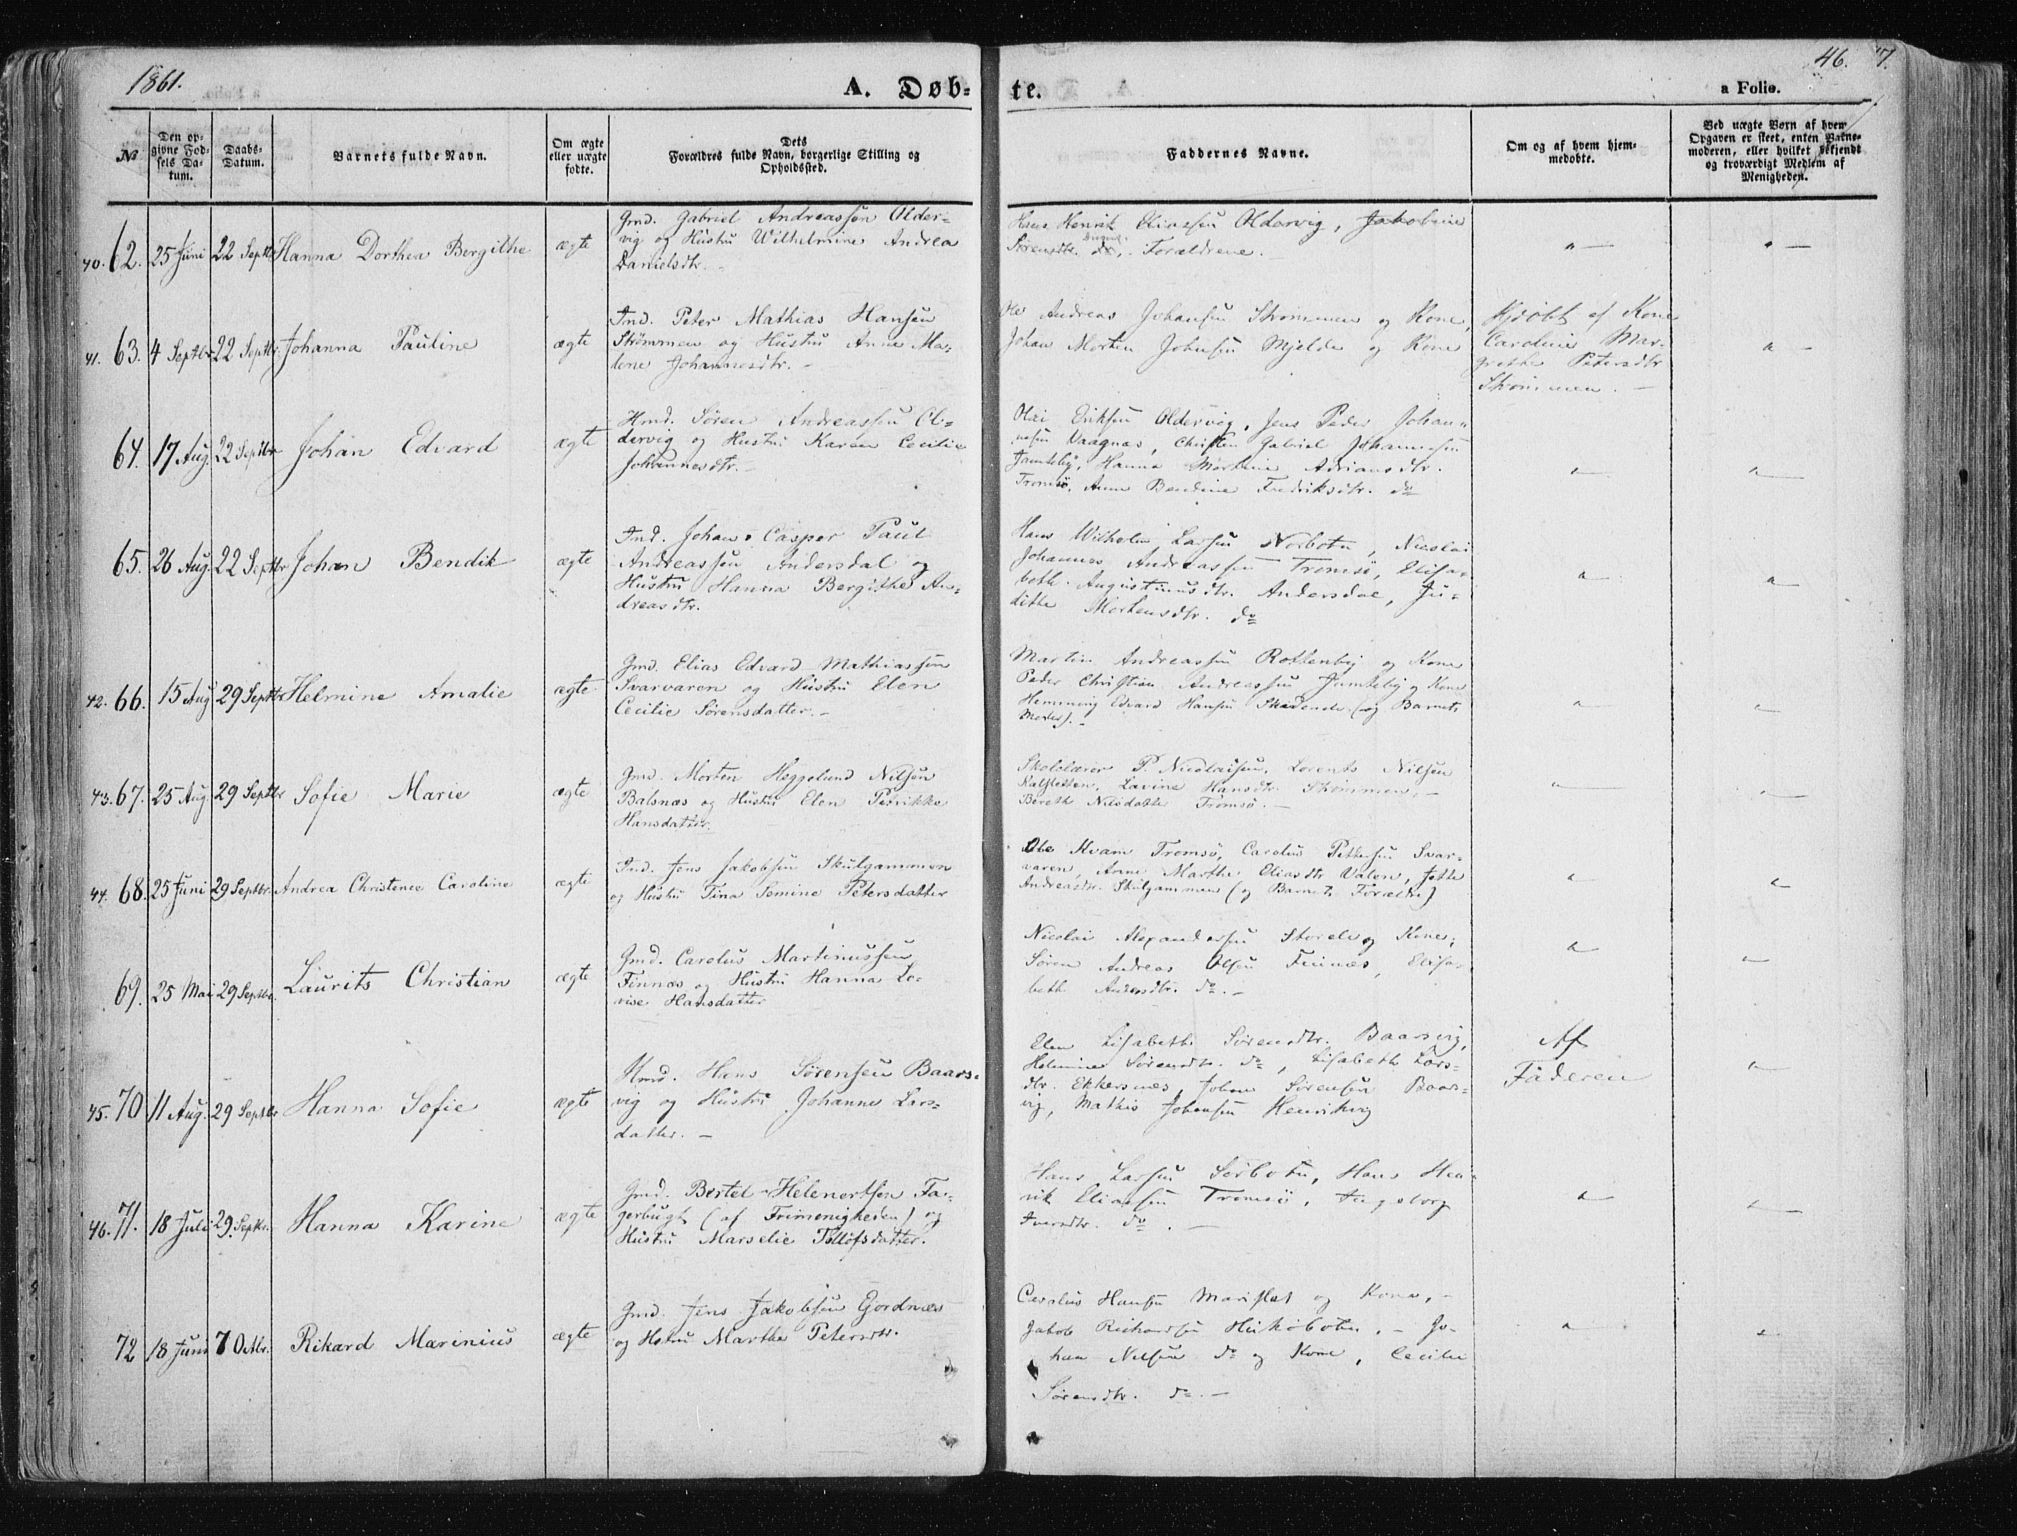 1861.
A. Døb-
te.
46.
7.
a Folio.
№
Den op-
givne Fød-
sels Da-
tum.
Daabs-
Datum.
Barnets fulde Navn.
Om ægte
eller uægte
fødte.
Dets
Forældres fulde Navn, borgerlige Stilling og
Opholdssted.
Faddernes Navne.
Om og af hvem hjem-
medøbte.
Ved uægte Børn af hvem
Opgaven er skeet, enten Barne-
moderen, eller hvilket bekjendt
og troværdigt Medlem af
Menigheden.
40. 62. 25 Juni 22 Septbr Hanna Dorthea Bergithe ægte
Gmd. Gabriel Andreassen Older-
vig og Hustru Wilhelmine Andrea
Danielsdtr.
Hans Henrik Eliassen Oldervig, Jakobine
Sørensdtr. do, Forældrene.
41. 63. 4 Septbr 22 Septbr Johanna Pauline ægte
Ind. Peter Mathias Hansen
Strømmen og Hustru Anne Ma-
lene Johannesdtr.
Ole Andreas Johansen Strømmen og Kone,
Johan Morten Johnsen Mjelde og Kone
Hjdøbt af Kone
Caroline Mar-
grethe Petersdtr
Strømmen.
64. 17 Aug. 22 Septbr Johan Edvard ægte
Hmd. Søren Andreassen Ol-
dervig og Hustru Karen Cecilie
Johannesdtr.
Eriksen Oldervig, Jens Peder Johan-
nesen Vaagnæs, Christen Gabriel Johannesen
Jamteby, Hanna Martine Adriansdtr.
Tromsø, Anne Bendine Fredriksdtr. do
65. 26 Aug. 22 Septbr Johan Bendik ægte
Ind. Johan Casper Paul
Andreassen Andersdal og
Hustru Hanna Bergithe An-
dreasdtr.
Hans Wilhelm Larsen Norbotn, Nicolai
Johannes Andreassen Tromsø, Elisa-
beth Augustinusdtr. Andersdal, Ju-
ditha Mortensdtr. do
42. 66. 15 Aug 29 Septbr Helmine Amalie ægte
Gmd. Elias Edvard Mathiassen
Svarvaren og Hustru Elen
Cecilie Sørensdatter.
Martin Andreassen Rottenby og Kone
Peder Christian Andreassen Jamteby og Kone
Hemming Edvard Hansen (og Barnets
Moder).
43. 67. 25 Aug. 29 Septbr Sofie Marie ægte
Gmd. Morten Heggelund Nilsen
Balsnæs og Hustru Elen Petrikke
Hansdatter.
Skolelærer P. Nicolaisen, Lorents Nilsen
Kalfsletten, Lavine Hansdtr. Strømmen,
Bereth Nilsdatter Tromsø.
44. 68. 25 Juni 29 Septbr. Andrea Christence Caroline ægte
Ind. Jens Jakobsen Skulgammen
og Hustru Tina Semine Petersdatter
Ole Kvam Tromsø, Carolus Pettersen Svar-
varen, Anne Marthe Eliasdtr Valen, Jette
Andreasdtr. Skulgammen (og Barnets Forældre)
69. 25 Mai 29 Septbr. Laurits Christian ægte
Gmd. Carolus Martinussen
Finnæs og Hustru Hanna Lo-
vise Hansdatter
Nicolai Alexandersen Storelv og Kone,
Søren Andreas Olsen Finnæs, Elisa-
beth Andersdtr. do.
45. 70. 11 Aug. 29 Septbr Hanna Sofie ægte
Hmd. Hans Sørensen Baars-
vig og Hustru Johanne Lars-
datter.
Elen Lisabeth Sørensdtr. Baarsvig,
Helmine Sørensdtr. do, Lisabeth Lars-
dtr. Ekkersnæs, Johan Sørensen Baars-
vig, Mathis Johansen Henrikvig
Af
Faderen
46. 71. 18 Juli 29. Septbr. Hanna Karine ægte
Gmd. Bertel Helenertsen Fa-
gerbugt (af Frimenigheden) og
Hustru Marselie Tollofsdatter.
Hans Larsen Sørbotn, Hans Hen-
rik Eliassen Tromsø, Ingeborg
Iversdtr. do.
72 18 Juni 7 Octbr. Rikard Marinius ægte
Gmd. Jens Jakobsen Gjordnæs
og Hustru Marthe Petersdtr.
Carolus Hansen og Kone,
Jakob Richardsen, Jo-
han Nilsen do og Kone, Cecilie
Sørensdtr. do.